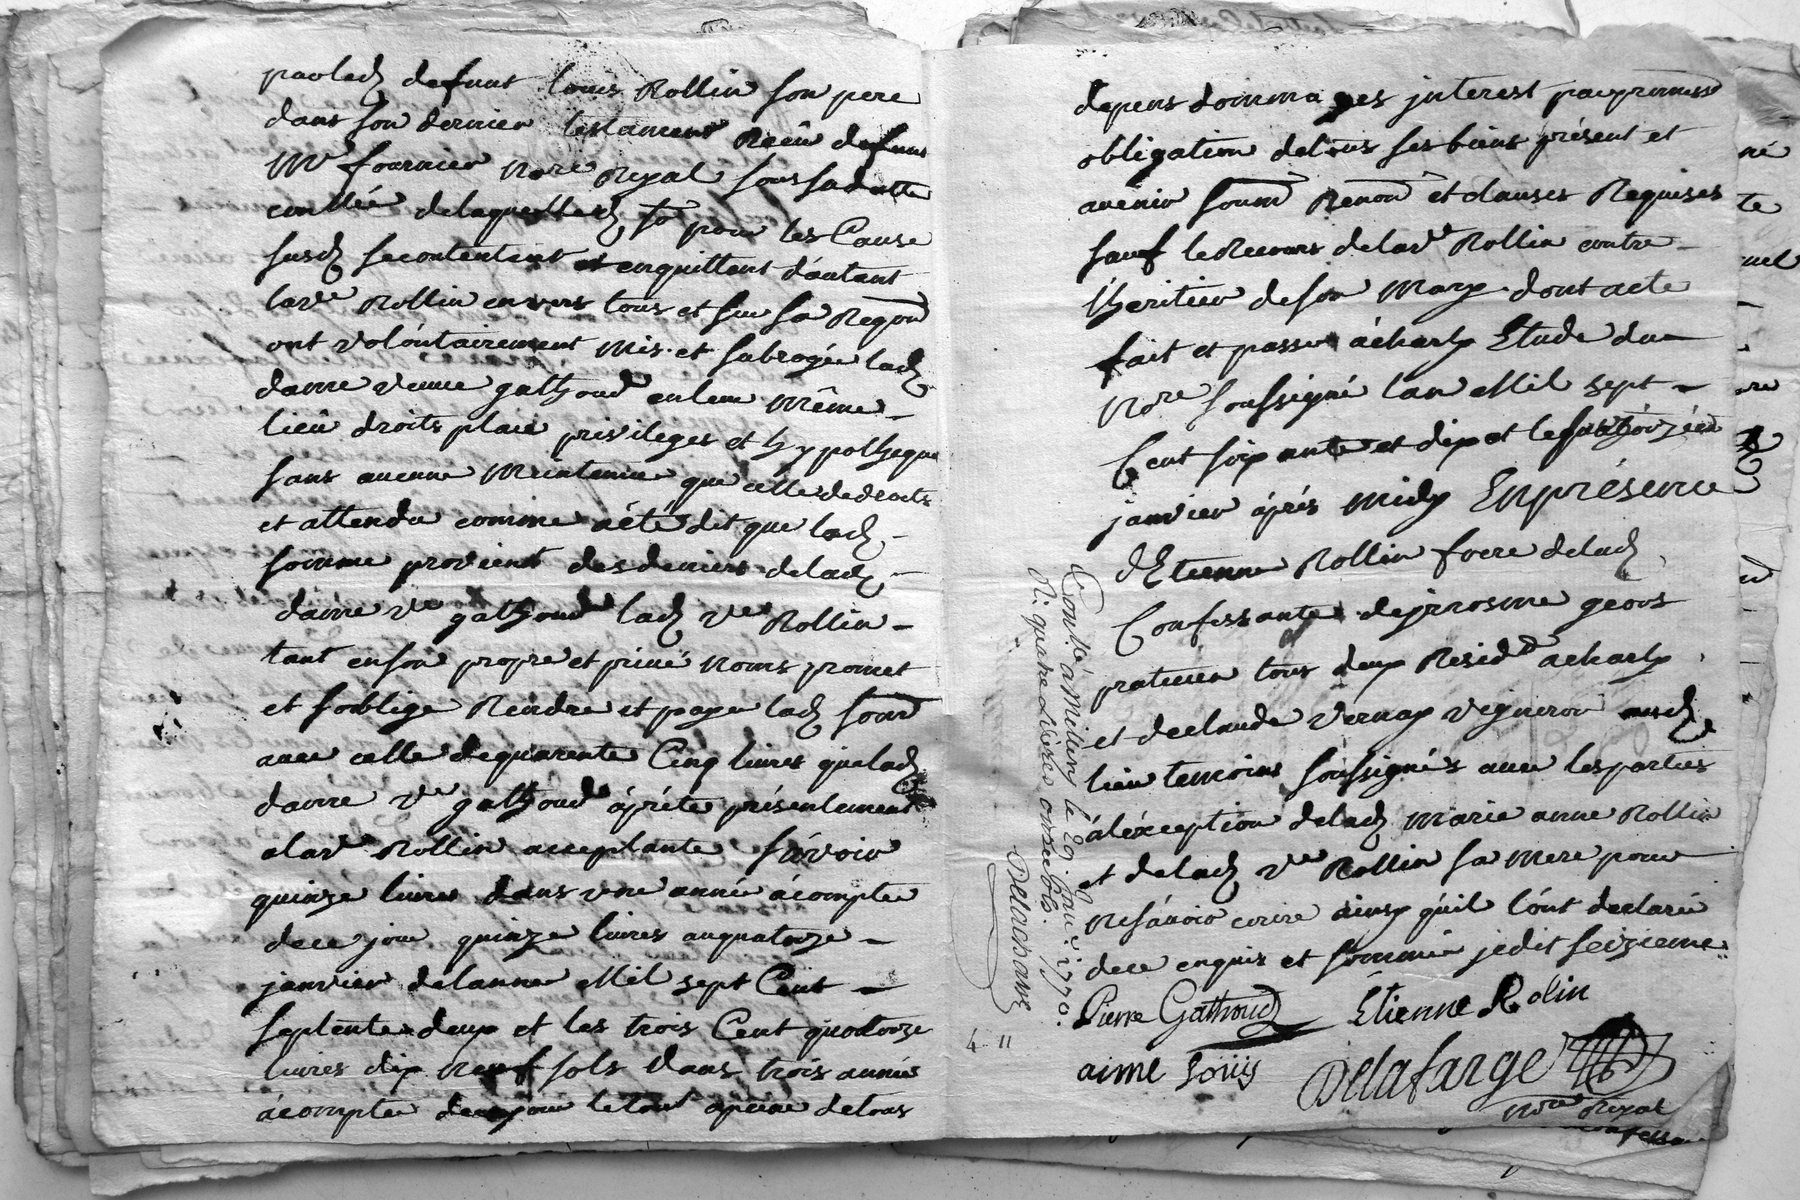 parlad defunt louis Rollin son pere
dans son dernier testament Reçu defunt
Mr fournier Nore Royal sous sa datte
conllée delaquelle
susd se contentent et enquittent d'autant
lad ve Rollin envers tous et sur sa Requon
ont volontairement mis et subrogée lad
dame veuve gathoud enleur Même
lieu droits place privileges et hypotheque
sans aucune Meintenue que celle de droits
et attendu comme acte dit que lad
somme provient des deniers de lad
dame ve gathoud lad ve Rollin
tant enson propre et privé Noms promet
et soblige Rendre et payer lad somme
avec celle dequarente Cinq livres que lad
dame ve gathoud aprété présentement
alad ve Rollin acceptante sávoir
quinze livres dans une année ácompter
dece jour quinze livres auquatorze
janvier delannee Mil sept Cent
septente deux et les trois Cent quatorze
livres dix neuf sols dans trois année
ácompter de ce jour le tout apeine de tous
depens dommages jnterest par promesse
obligation detous ses biens présent et
avenir soumn Renonn et clauses Requises
sauf le Recours de lad ve Rollin contre
lheritier de son Mary dont acte
fait et passé á charly Etude du
Nore soussigné lan Mil sept
Cent soixante et dix et le quatorzieme
janvier áprés midy En présence
d'Etienne Rollin frere de lad
Confessante de jerosme geors
praticien tous deux Residt a charly
et de claude vernay vigneron aud
lieu temoins soussignés avec les parties
áléxception de lad marie anne Rollin
et de lad ve Rollin sa mere pour
Ne sávoir ecrire ainsy quil l'ont declaré
de ce enquis et sommé je dit seizieme
Pierre Gathoud Etienne Rolin
aime
Delafarge
Nore Royal
Contlé á Millery le 29 janr 1770.
R: quatre Livres onze sols.
Delachave
4 11